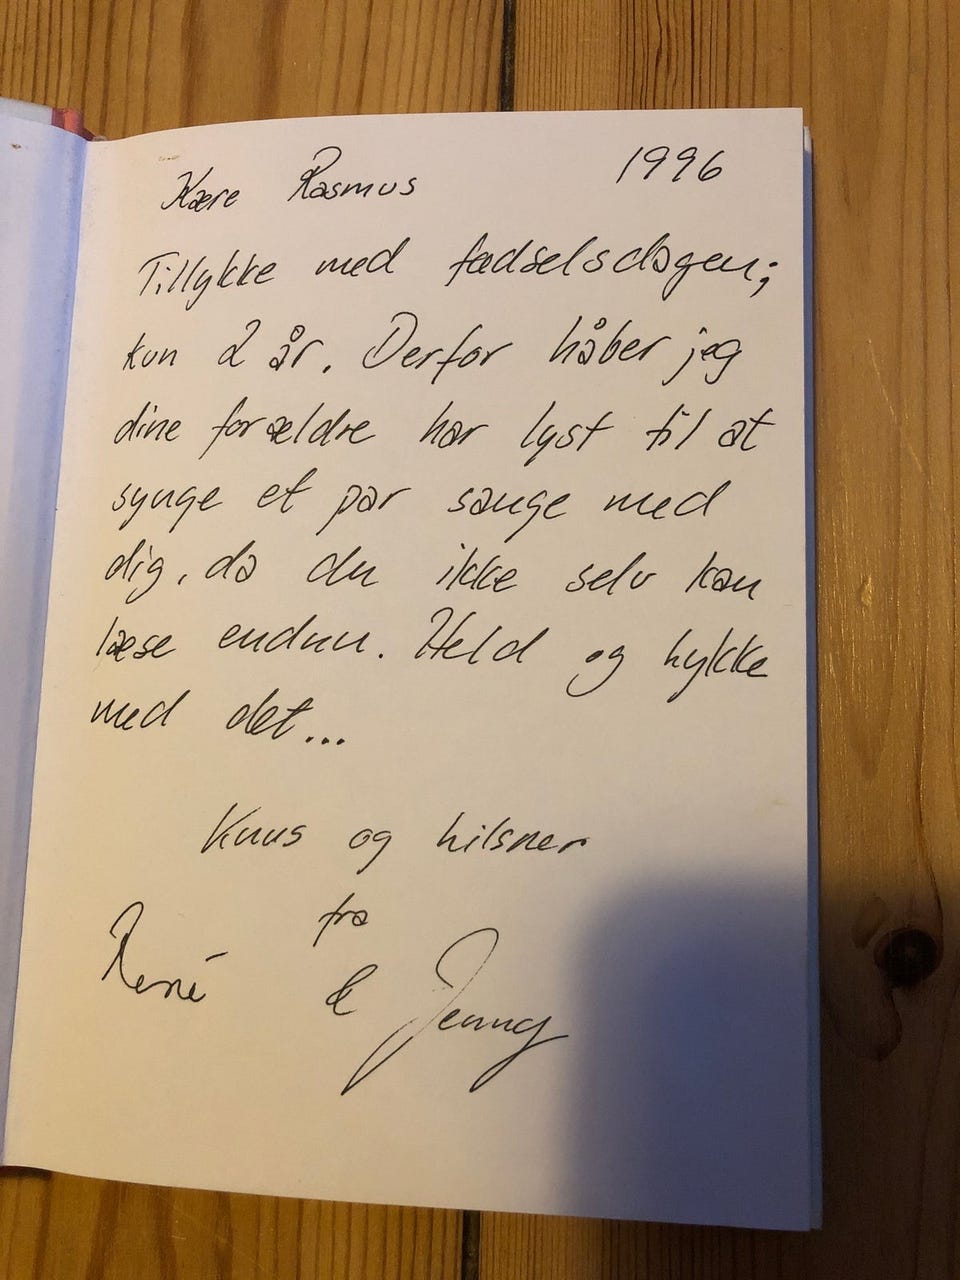 Kære Rasmus 1996
Tillykke med fødselsdagen;
kun 2 år. Derfor håber jeg
dine forældre har lyst til at
synge et par sange med
dig, da du ikke selv kan
læse endnu. Held og lykke
med det...
Knus og hilsner
fra
René & Jenny